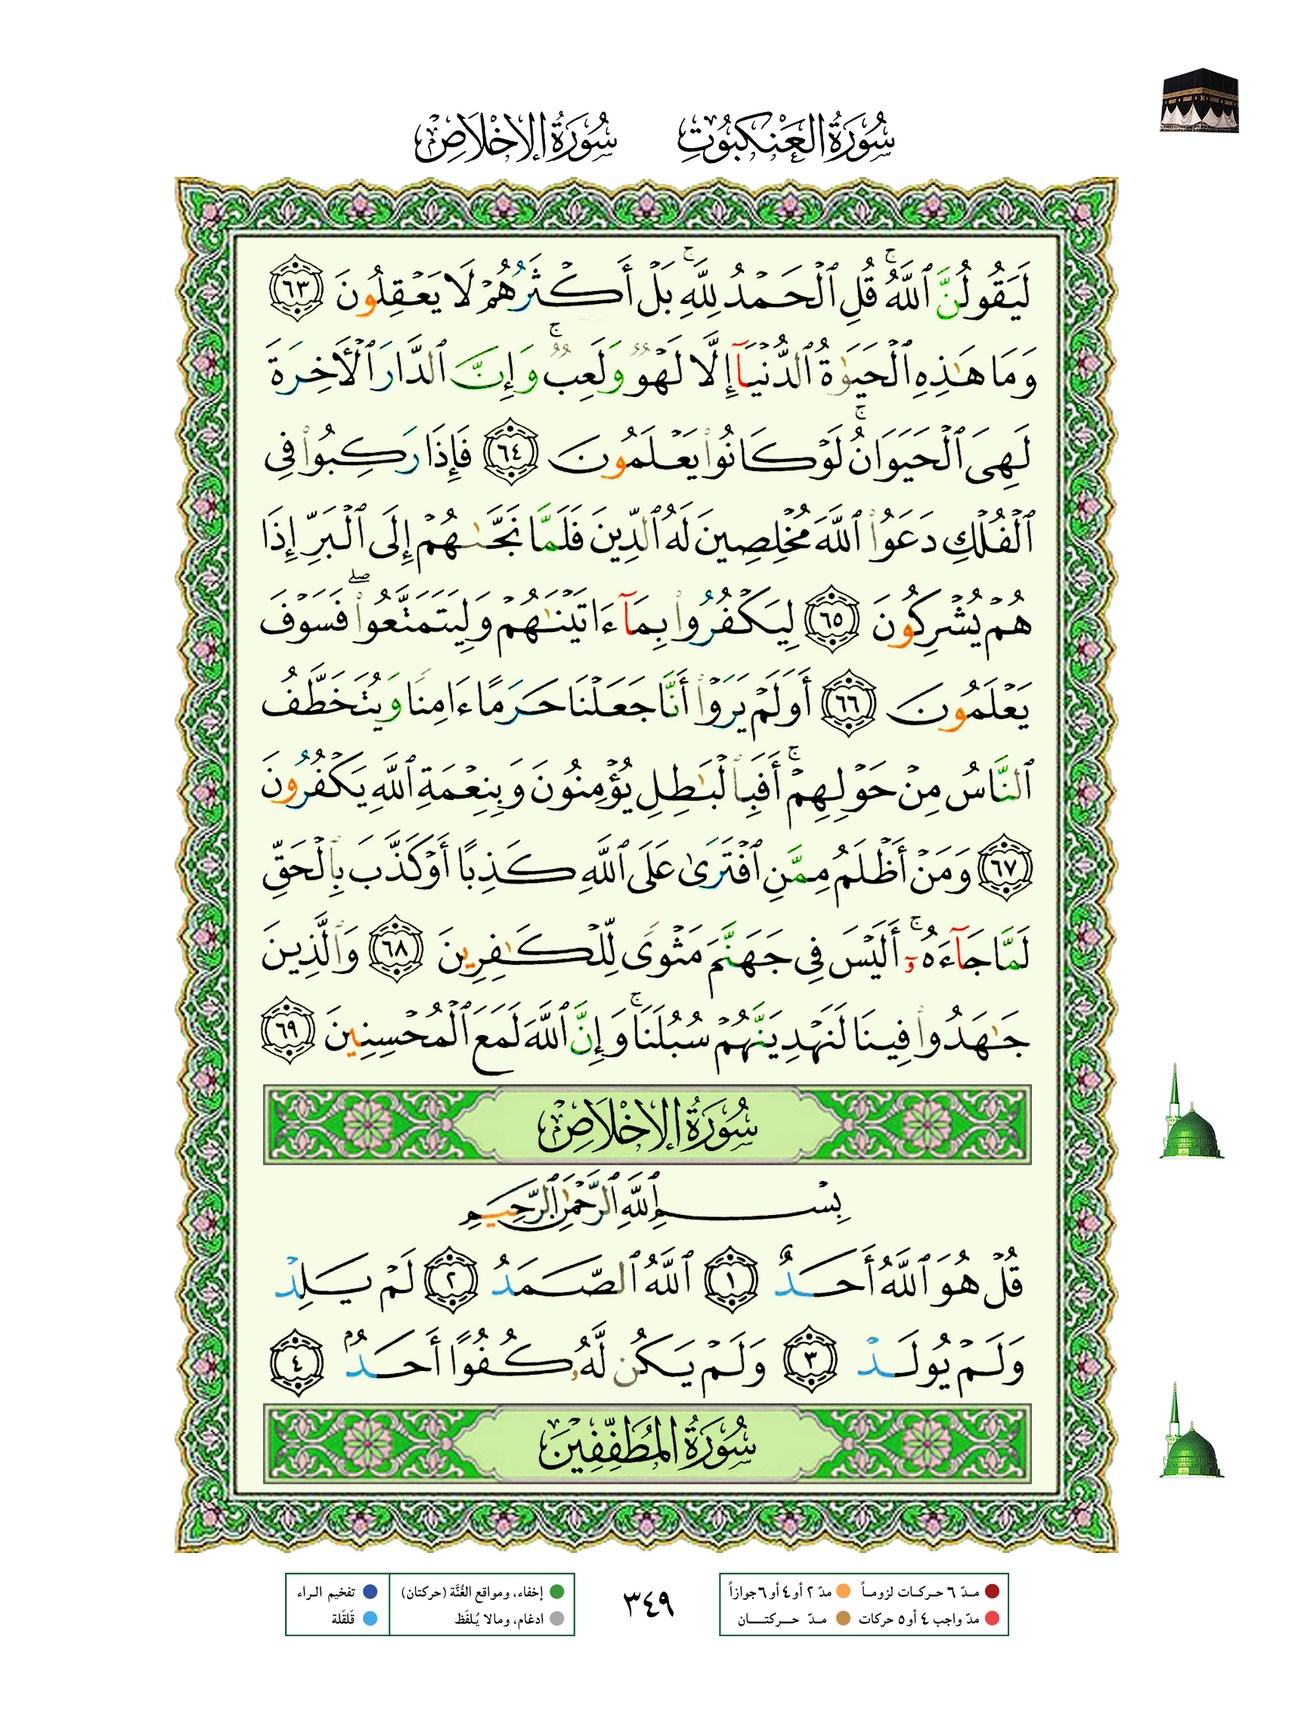 سُورَةُ العَنْكَبُوتِ سُورَةُ الإِخْلَاصِ
لَيَقُولُنَّ ٱللَّهُۚ قُلِ ٱلْحَمْدُ لِلَّهِۚ بَلْ أَكْثَرُهُمْ لَا يَعْقِلُونَ ٦٣
وَمَا هَٰذِهِ ٱلْحَيَوٰةُ ٱلدُّنْيَآ إِلَّا لَهْوٌ وَلَعِبٌۚ وَإِنَّ ٱلدَّارَ ٱلْأَخِرَةَ
لَهِىَ ٱلْحَيَوَانُۚ لَوْ كَانُوا۟ يَعْلَمُونَ ٦٤ فَإِذَا رَكِبُوا۟ فِى
ٱلْفُلْكِ دَعَوُا۟ ٱللَّهَ مُخْلِصِينَ لَهُ ٱلدِّينَ فَلَمَّا نَجَّىٰهُمْ إِلَى ٱلْبَرِّ إِذَا
هُمْ يُشْرِكُونَ ٦٥ لِيَكْفُرُوا۟ بِمَآ ءَاتَيْنَٰهُمْ وَلِيَتَمَتَّعُوا۟ۖ فَسَوْفَ
يَعْلَمُونَ ٦٦ أَوَلَمْ يَرَوْا۟ أَنَّا جَعَلْنَا حَرَمًا ءَامِنًا وَيُتَخَطَّفُ
ٱلنَّاسُ مِنْ حَوْلِهِمْۚ أَفَبِٱلْبَٰطِلِ يُؤْمِنُونَ وَبِنِعْمَةِ ٱللَّهِ يَكْفُرُونَ
٦٧ وَمَنْ أَظْلَمُ مِمَّنِ ٱفْتَرَىٰ عَلَى ٱللَّهِ كَذِبًا أَوْ كَذَّبَ بِٱلْحَقِّ
لَمَّا جَآءَهُۥٓۚ أَلَيْسَ فِى جَهَنَّمَ مَثْوًى لِّلْكَٰفِرِينَ ٦٨ وَٱلَّذِينَ
جَٰهَدُوا۟ فِينَا لَنَهْدِيَنَّهُمْ سُبُلَنَاۚ وَإِنَّ ٱللَّهَ لَمَعَ ٱلْمُحْسِنِينَ ٦٩
سُورَةُ الإِخْلَاصِ
بِسْمِ ٱللَّهِ ٱلرَّحْمَٰنِ ٱلرَّحِيمِ
قُلْ هُوَ ٱللَّهُ أَحَدٌ ١ ٱللَّهُ ٱلصَّمَدُ ٢ لَمْ يَلِدْ
وَلَمْ يُولَدْ ٣ وَلَمْ يَكُن لَّهُۥ كُفُوًا أَحَدٌۢ ٤
سُورَةُ المُطَفِّفِينَ
مدّ ٦ حركات لزوماً مدّ ٢ أو ٤ أو ٦ جوازاً ٣٤٩ إخفاء، ومواقع الغُنَّة (حركتان) تفخيم الراء
مدّ واجب ٤ أو ٥ حركات مدّ حركتان ادغام، ومالا يُلفَظ قَلقَلة